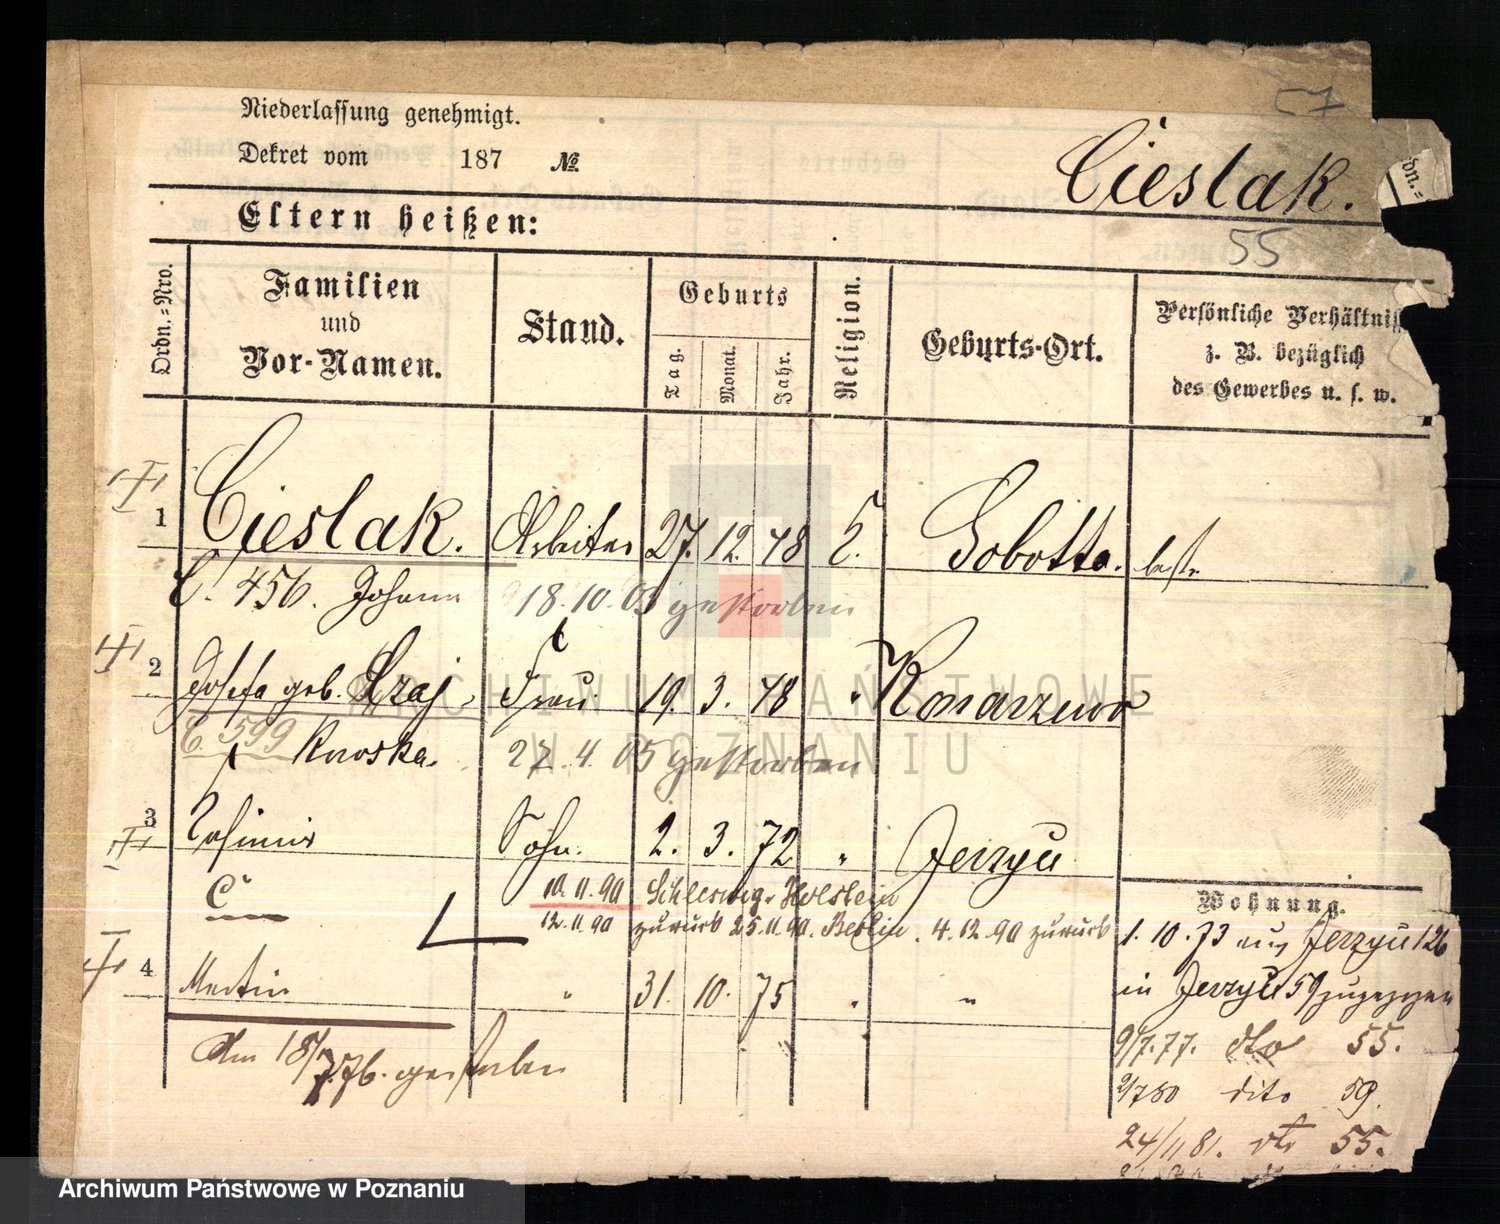 57
Niederlassung genehmigt.
Dekret vom 187 №.
Cieslak.
Ordn.=
Eltern heißen:
55
Ordn.=Nro.
Familien
und
Vor-Namen.
Stand.
Geburts
Tag.
Monat.
Jahr.
Religion.
Geburts-Ort.
Persönliche Verhältniss
z. B. bezüglich
des Gewerbes u. s. w.
1 Cieslak. Arbeiter 27. 12. 48 Gobotta.
C. 456. Johann 18. 10. 03 gestorben
2 Josefa geb. Kraj. Frau 19. 3. 48 " Konarzewo
C. 599 Knoska. 27. 4. 05 gestorben
3 Casimir Sohn. 2. 3. 72 " Jerzyce
10. 11. 90 Schleswig-Holstein
12. 11. 90 zurück 25. 11. 90. Berlin. 4. 12. 90 zurück
4 Martin " 31. 10. 75 " "
Am 18/7. 76. gestorben
Wohnung.
1. 10. 73 aus Jerzyce 126
in Jerzyce 59 zugezogen
9/7. 77. dto 55.
2/7 80 dito 59.
24/11 81. dto 55.
ARCHIWUM PAŃSTWOWE
W POZNANIU
Archiwum Państwowe w Poznaniu